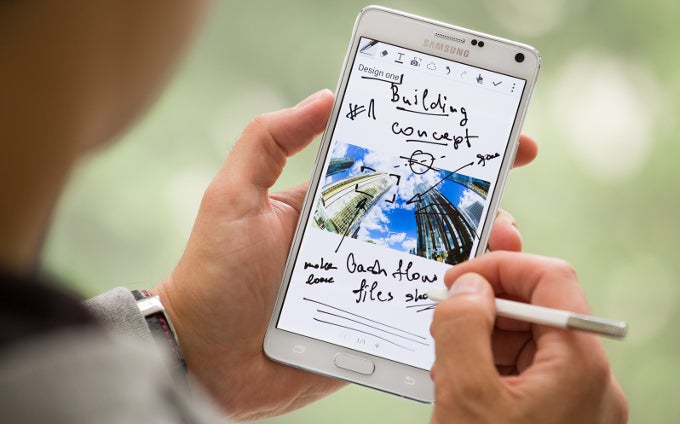 SAMSUNG
Design one
Building
#1 concept
space
make Cash flow
files sho
1/1